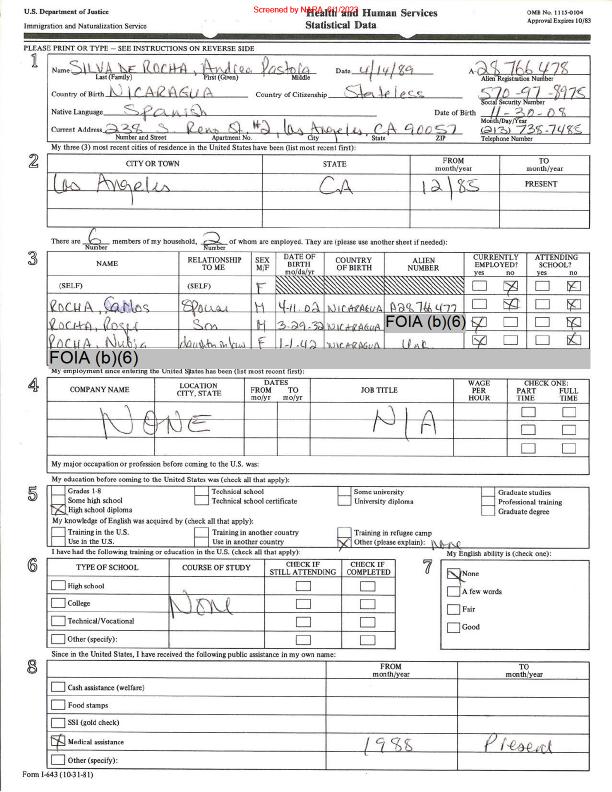 U.S. Department of Justice
Immigration and Naturalization Service
Screened by NARA, 8/1/2023
Health and Human Services
Statistical Data
OMB No. 1115-0104
Approval Expires 10/83
PLEASE PRINT OR TYPE — SEE INSTRUCTIONS ON REVERSE SIDE
1
Name SILVA DE ROCHA, Andrea Pastora Date 4/14/89 A- 28 766 478
Last (Family) First (Given) Middle Alien Registration Number
Country of Birth NICARAGUA Country of Citizenship Stateless 570-97-8975
Social Security Number
Native Language Spanish Date of Birth 11-30-08
Month/Day/Year
Current Address 238 S. Reno St. #2, Los Angeles, CA 90057 (213) 738-7485
Number and Street Apartment No. City State ZIP Telephone Number
My three (3) most recent cities of residence in the United States have been (list most recent first):
2
CITY OR TOWN STATE FROM month/year TO month/year
Los Angeles CA 12/85 PRESENT
There are 6 members of my household, 2 of whom are employed. They are (please use another sheet if needed):
Number Number
3
NAME RELATIONSHIP TO ME SEX M/F DATE OF BIRTH mo/da/yr COUNTRY OF BIRTH ALIEN NUMBER CURRENTLY EMPLOYED? yes no ATTENDING SCHOOL? yes no
(SELF) (SELF) F
ROCHA, Carlos Spouse M 4-11-02 NICARAGUA A28766477
ROCHA, Roger Son M 3-29-32 NICARAGUA FOIA (b)(6)
ROCHA, Nubia daughter in law F 1-1-42 NICARAGUA Unk
FOIA (b)(6)
My employment since entering the United States has been (list most recent first):
4
COMPANY NAME LOCATION CITY, STATE DATES FROM mo/yr TO mo/yr JOB TITLE WAGE PER HOUR CHECK ONE: PART TIME FULL TIME
NONE N/A
My major occupation or profession before coming to the U.S. was:
My education before coming to the United States was (check all that apply):
5
Grades 1-8 Technical school Some university Graduate studies
Some high school Technical school certificate University diploma Professional training
High school diploma Graduate degree
My knowledge of English was acquired by (check all that apply):
Training in the U.S. Training in another country Training in refugee camp
Use in the U.S. Use in another country Other (please explain): None
I have had the following training or education in the U.S. (check all that apply):
My English ability is (check one):
6
TYPE OF SCHOOL COURSE OF STUDY CHECK IF STILL ATTENDING CHECK IF COMPLETED
High school
College None
Technical/Vocational
Other (specify):
7
None
A few words
Fair
Good
Since in the United States, I have received the following public assistance in my own name:
8
FROM month/year TO month/year
Cash assistance (welfare)
Food stamps
SSI (gold check)
Medical assistance 1988 Present
Other (specify):
Form I-643 (10-31-81)